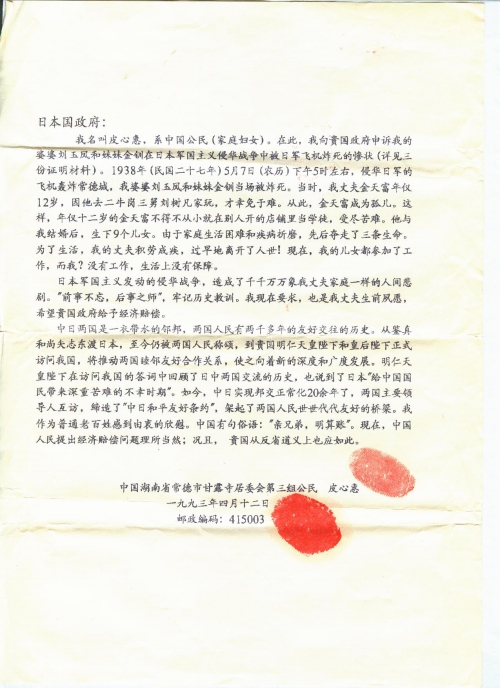 日本国政府：
我名叫皮心惠，系中国公民（家庭妇女）。在此，我向貴国政府申诉我的
婆婆刘玉凤和妹妹金钏在日本军国主义侵华战争中被日军飞机炸死的惨状（详见三
份证明材料）。1938年（民国二十七年）5月7日（农历）下午5时左右，侵华日军的
飞机轰炸常德城，我婆婆刘玉凤和妹妹金钏当场被炸死。当时，我丈夫金天富年仅
12岁，因他去二牛岗三舅刘树凡家玩，才幸免于难。从此，金天富成为孤儿。这
样，年仅十二岁的金天富不得不从小就在别人开的店铺里当学徒，受尽苦难。他与
我结婚后，生下9个儿女。由于家庭生活困难和疾病折磨，先后夺走了三条生命。
为了生活，我的丈夫积劳成疾，过早地离开了人世！现在，我的儿女都参加了工
作，而我？没有工作，生活上没有保障。
日本军国主义发动的侵华战争，造成了千千万万象我丈夫家庭一样的人间悲
剧。"前事不忘，后事之师"，牢记历史教训。我现在要求，也是我丈夫生前夙愿，
希望貴国政府给于经济赔偿。
中日两国是一衣带水的邻邦，两国人民有两千多年的友好交往的历史。从鉴真
和尚矢志东渡日本，至今仍被两国人民称颂，到貴国明仁天皇陛下和皇后陛下正式
访问我国，将推动两国睦邻友好合作关系，使之向着新的深度和广度发展。明仁天
皇陛下在访问我国的答词中回顾了日中两国交流的历史，也说到了日本"给中国国
民带来深重苦难的不幸时期"。如今，中日实现邦交正常化20余年了，两国主要领
导人互访，缔造了"中日和平友好条约"，架起了两国人民世世代代友好的桥梁。我
作为普通老百姓感到由衷的欣慰。中国有句俗语："亲兄弟，明算账"。现在，中国
人民提出经济赔偿问题理所当然；况且，貴国从反省道义上也应如此。
中国湖南省常德市甘露寺居委会第三组公民 皮心惠
一九九三年四月十二日
邮政编码：415003